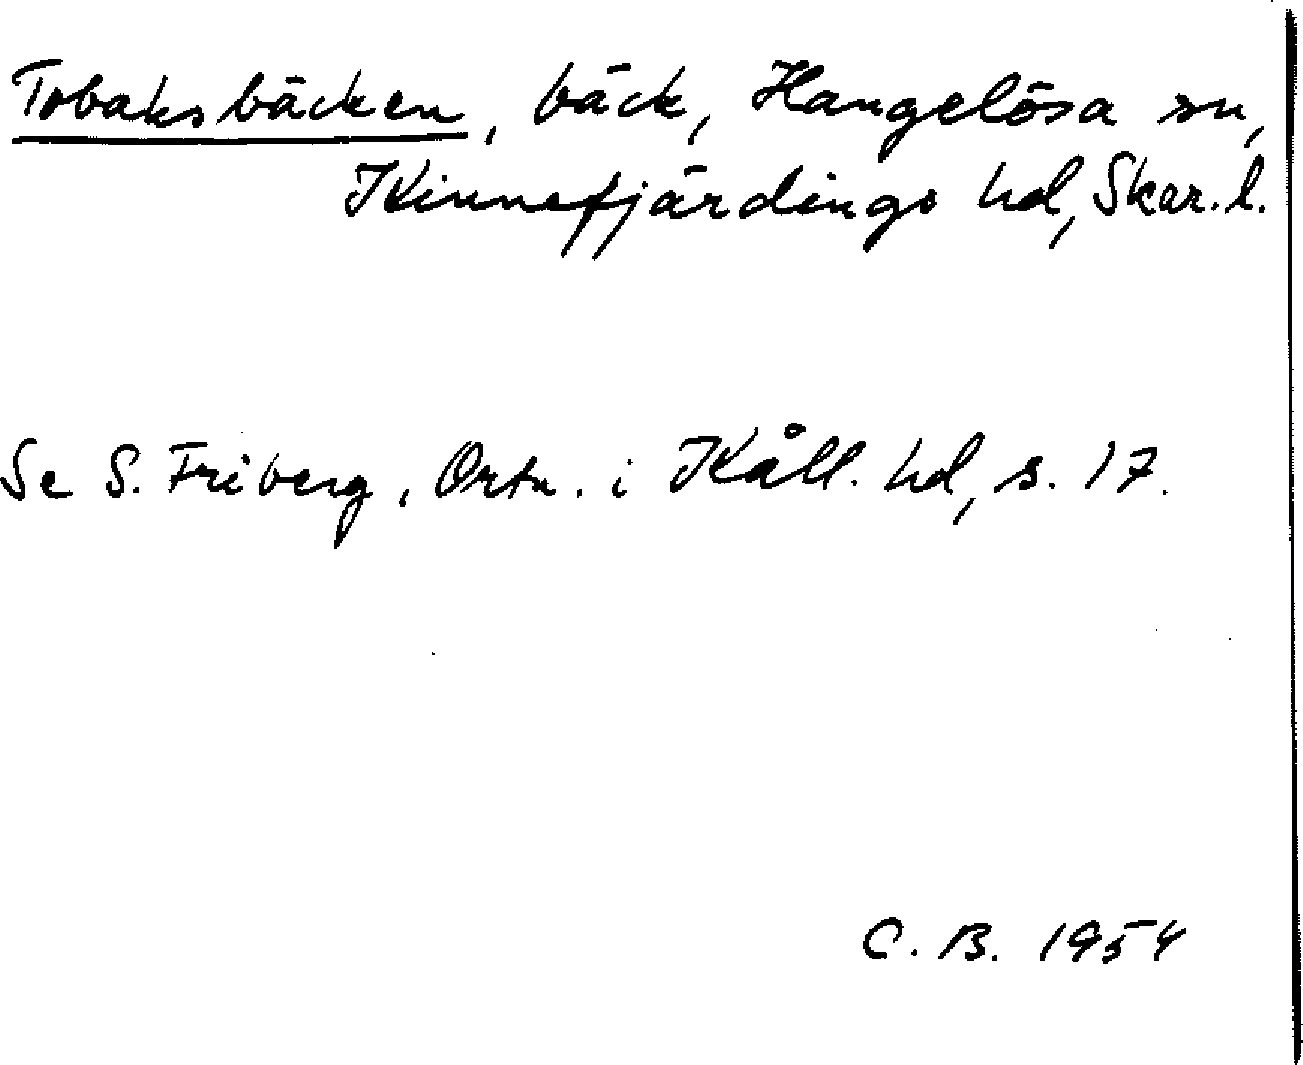 Tobaksbäcken, bäck, Hangelösa sn,
Kinnefjärdings hd, Skar. l.
Se S. Friberg, Ortn. i Kåll. hd, s. 17.
C. B. 1954